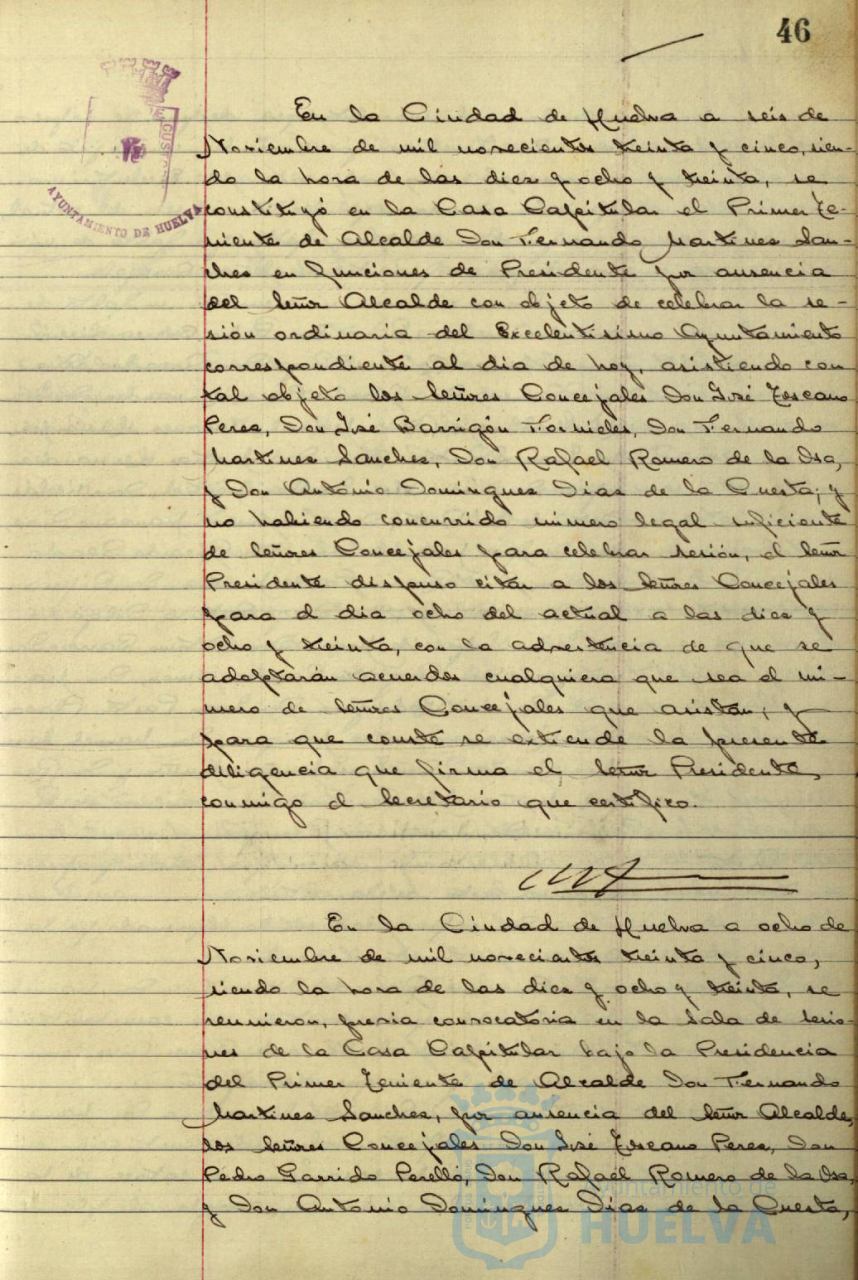 46
AYUNTAMIENTO DE HUELVA
En la Ciudad de Huelva a seis de
Noviembre de mil novecientos treinta y cinco, sien-
do la hora de las diez y ocho y treinta, se
constituyó en la Casa Capitular el Primer Te-
niente de Alcalde Don Fernando Martinez San-
chez en funciones de Presidente por ausencia
del Señor Alcalde con objeto de celebrar la se-
sión ordinaria del Excelentisimo Ayuntamiento
correspondiente al dia de hoy, asistiendo con
tal objeto los Señores Concejales Don José Toscano
Perez, Don José Barrigón Fornieles, Don Fernando
Martinez Sanchez, Don Rafael Romero de la Osa,
y Don Antonio Dominguez Diaz de la Cuesta; y
no habiendo concurrido número legal suficiente
de Señores Concejales para celebrar sesión, el Señor
Presidente dispuso citar a los Señores Concejales
para el dia ocho del actual a las diez y
ocho y treinta, con la advertencia de que se
adoptarán acuerdos cualquiera que sea el nú-
mero de Señores Concejales que asistan; y
para que conste se extiende la presente
diligencia que firma el Señor Presidente,
conmigo el Secretario que certifico.
En la Ciudad de Huelva a ocho de
Noviembre de mil novecientos treinta y cinco,
siendo la hora de las diez y ocho y treinta, se
reunieron, previa convocatoria en la Sala de Sesio-
nes de la Casa Capitular bajo la Presidencia
del Primer Teniente de Alcalde Don Fernando
Martinez Sanchez, por ausencia del Señor Alcalde,
los Señores Concejales Don José Toscano Perez, Don
Pedro Garrido Perelló, Don Rafael Romero de la Osa,
y Don Antonio Dominguez Diaz de la Cuesta,
Ayuntamiento de
HUELVA